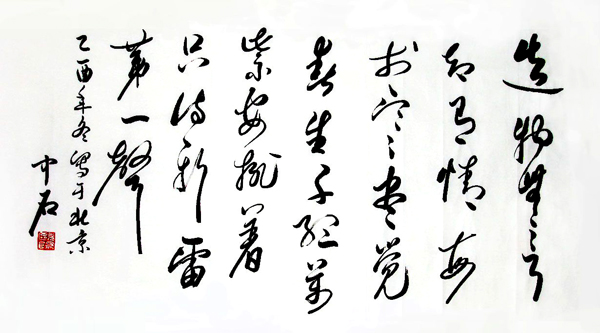 造物無言
却有情每
於寒盡覺
春生千紅萬
紫安排著
只待新雷
第一聲
乙酉年冬寫于北京
中石